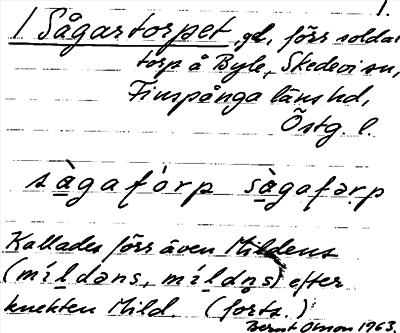 1.
1 Sågartorpet, gd, förr solda
torp å Byle, Skedevi sn,
Finspånga läns hd,
Östg. l.
sàgafórp sàgafərp
Kallades förr även Mildens
(míldəns, míldn̥s) efter
knekten Mild. (forts.)
Bernt Olsson 1963.